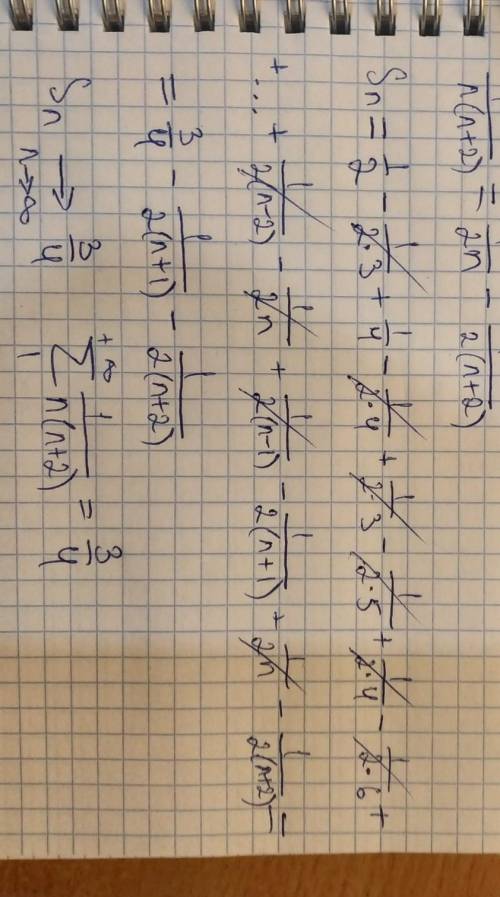 1/(n(n+2)) = 1/(2n) - 1/(2(n+2))
Sn = 1/2 - 1/(2·3) + 1/4 - 1/(2·4) + 1/(2·3) - 1/(2·5) + 1/(2·4) - 1/(2·6) +
+ ... + 1/(2(n-2)) - 1/(2n) + 1/(2(n-1)) - 1/(2(n+1)) + 1/(2n) - 1/(2(n+2)) =
= 3/4 - 1/(2(n+1)) - 1/(2(n+2))
Sn → n→∞ 3/4 +∞ ∑ 1 1/(n(n+2)) = 3/4